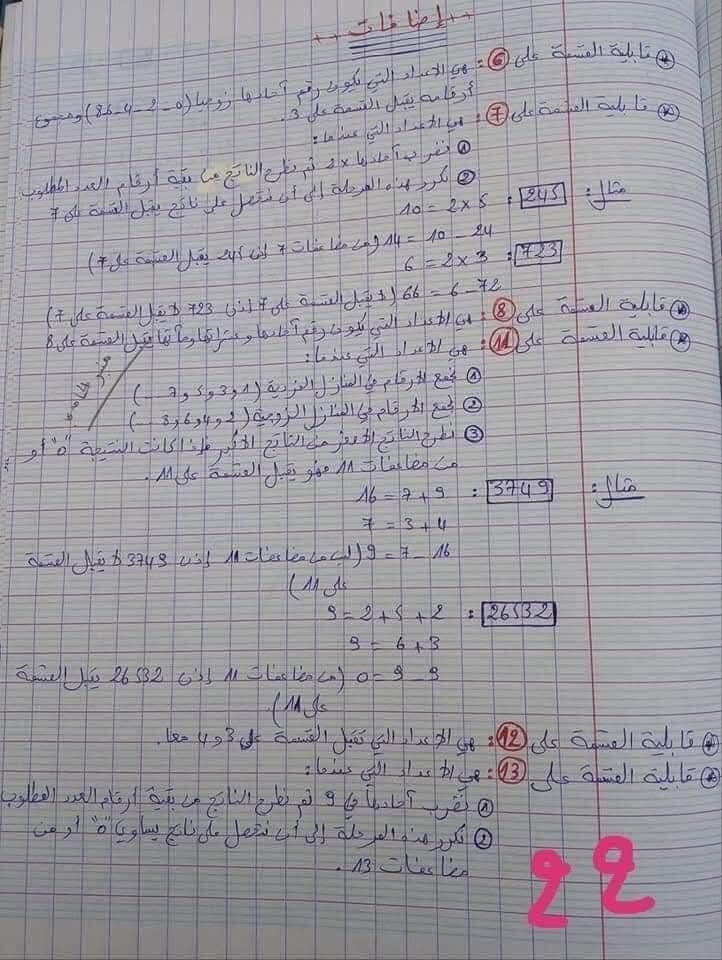 ++ إضافات ++
* قابلية القسمة على 6 : هي الأعداد التي يكون رقم آحادها زوجيا (0-2-4-6-8) ومجموع
أرقامه يقبل القسمة على 3.
* قابلية القسمة على 7 : هي الأعداد التي عندما :
1 نضرب آحادها x 2 ثم نطرح الناتج من بقية أرقام العدد المطلوب
2 نكرر هذه المرحلة إلى أن نتحصل على ناتج يقبل القسمة على 7
مثال : 245 : 5 x 2 = 10
24 - 10 = 14 (من مضاعفات 7 إذن 245 يقبل القسمة على 7)
723 : 3 x 2 = 6
72 - 6 = 66 (لا يقبل القسمة على 7 إذن 723 لا يقبل القسمة على 7)
* قابلية القسمة على 8 : هي الأعداد التي يكون رقم آحادها وعشراتها ومآتها يقبل القسمة على 8
* قابلية القسمة على 11 : هي الأعداد التي عندما :
1 نجمع الأرقام في المنازل الفردية (1 و 3 و 5 و 7 ...)
2 نجمع الأرقام في المنازل الزوجية (2 و 4 و 6 و 8 ...)
3 نطرح الناتج الأصغر من الناتج الأكبر فإذا كانت النتيجة "0" أو
من مضاعفات 11 فهو يقبل القسمة على 11.
مثال : 3749 : 9 + 7 = 16
4 + 3 = 7
16 - 7 = 9 (ليس من مضاعفات 11 إذن 3749 لا يقبل القسمة
على 11)
26532 : 2 + 5 + 2 = 9
3 + 6 = 9
9 - 9 = 0 (من مضاعفات 11 إذن 26532 يقبل القسمة
على 11).
* قابلية القسمة على 12 : هي الأعداد التي تقبل القسمة على 3 و 4 معا.
* قابلية القسمة على 13 : هي الأعداد التي عندما :
1 نضرب آحادها في 9 ثم نطرح الناتج من بقية أرقام العدد المطلوب
2 نكرر هذه المرحلة إلى أن نتحصل على ناتج يساوي "0" أو من
مضاعفات 13.
22